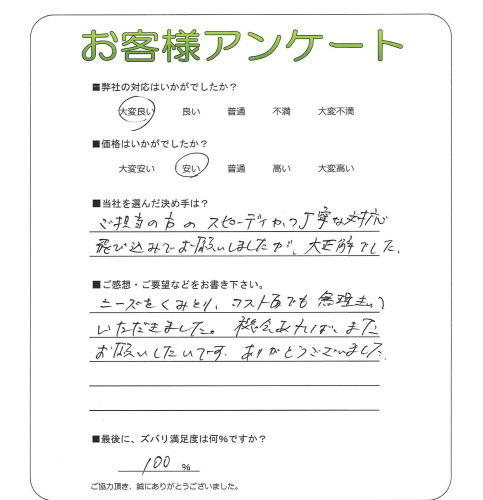 お客様アンケート
■弊社の対応はいかがでしたか?
大変良い 良い 普通 不満 大変不満
■価格はいかがでしたか?
大変安い 安い 普通 高い 大変高い
■当社を選んだ決め手は?
ご担当の方のスピーディかつ丁寧な対応
飛び込みでお願いしましたが、大正解でした。
■ご感想・ご要望などをお書き下さい。
ニーズをくみとり、コスト面でも無理言って
いただきました。機会あれば、また
お願いしたいです。ありがとうございました。
■最後に、ズバリ満足度は何%ですか?
100 %
ご協力頂き、誠にありがとうございました。